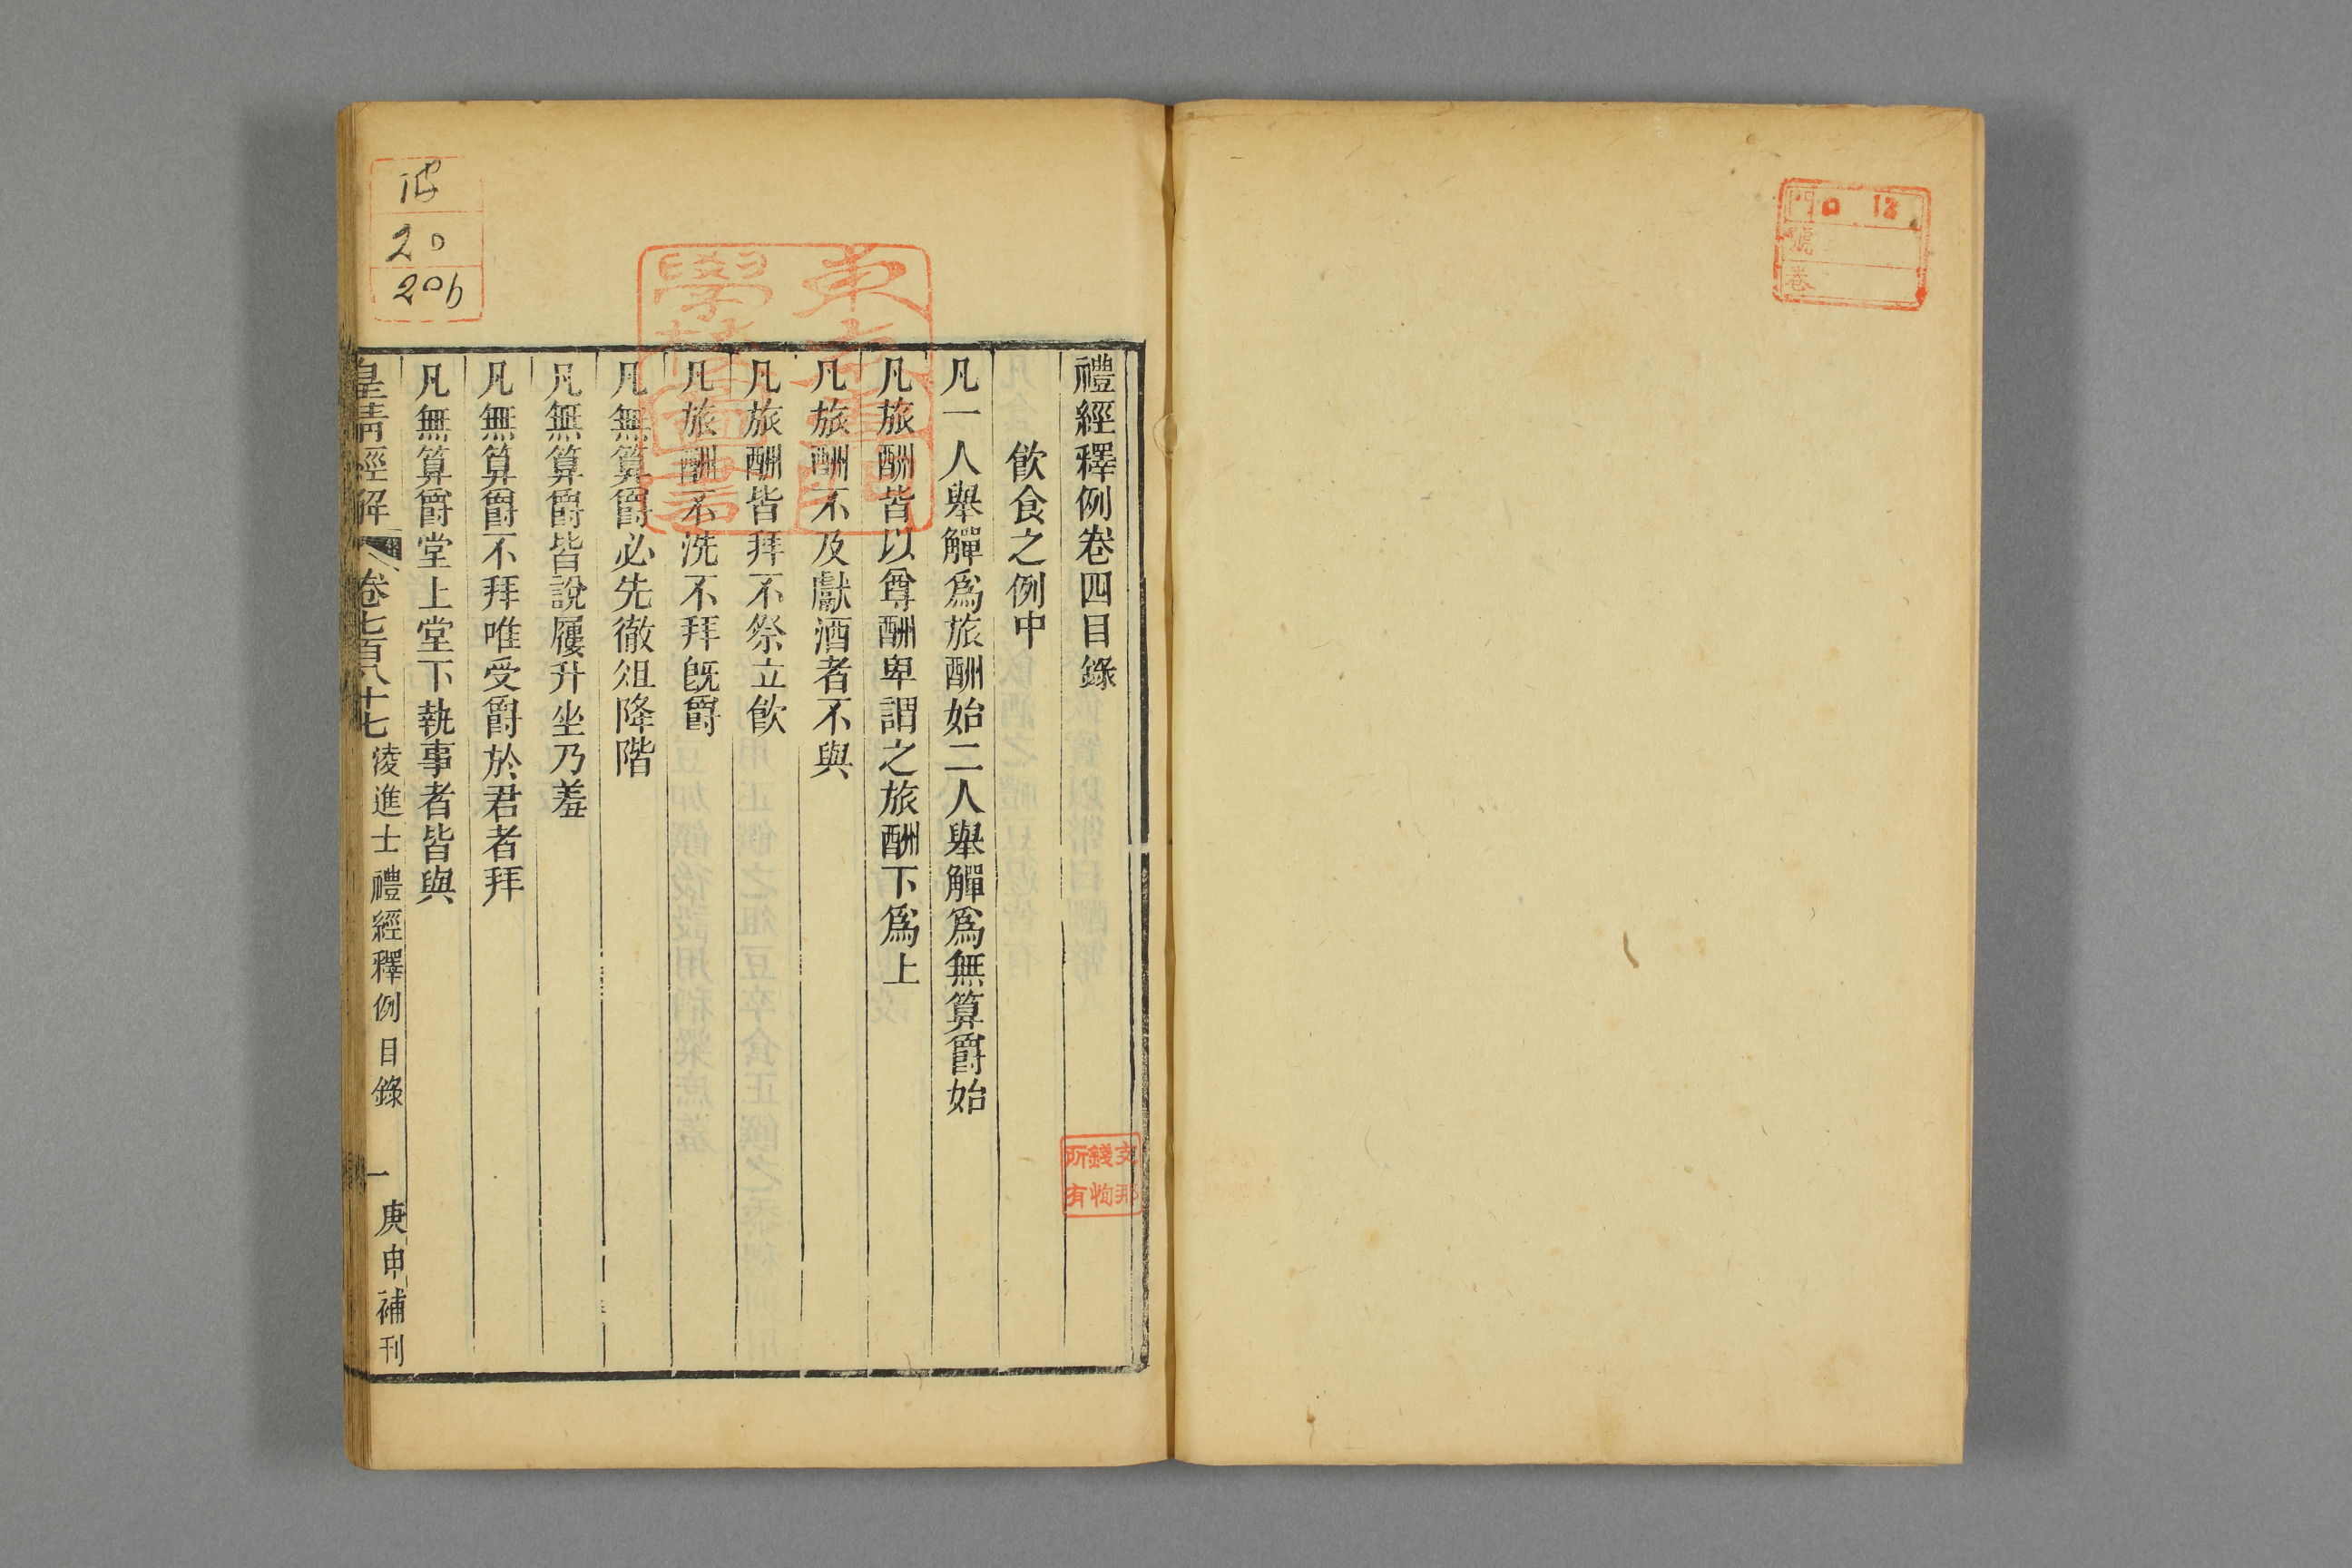 門 口 13
號
卷
禮經釋例卷四目錄
飮食之例中
凡一人舉觶爲旅酬始二人舉觶爲無算爵始
凡旅酬皆以尊酬卑謂之旅酬下爲上
凡旅酬不及獻酒者不與
凡旅酬皆拜不祭立飮
凡旅酬不洗不拜旣爵
凡無算爵必先徹俎降階
凡無算爵皆說屨升坐乃羞
凡無算爵不拜唯受爵於君者拜
凡無算爵堂上堂下執事者皆與
皇淸經解 卷七百八十七 淩進士禮經釋例目錄 一 庚申補刊
支那
錢恂
所有
20
206